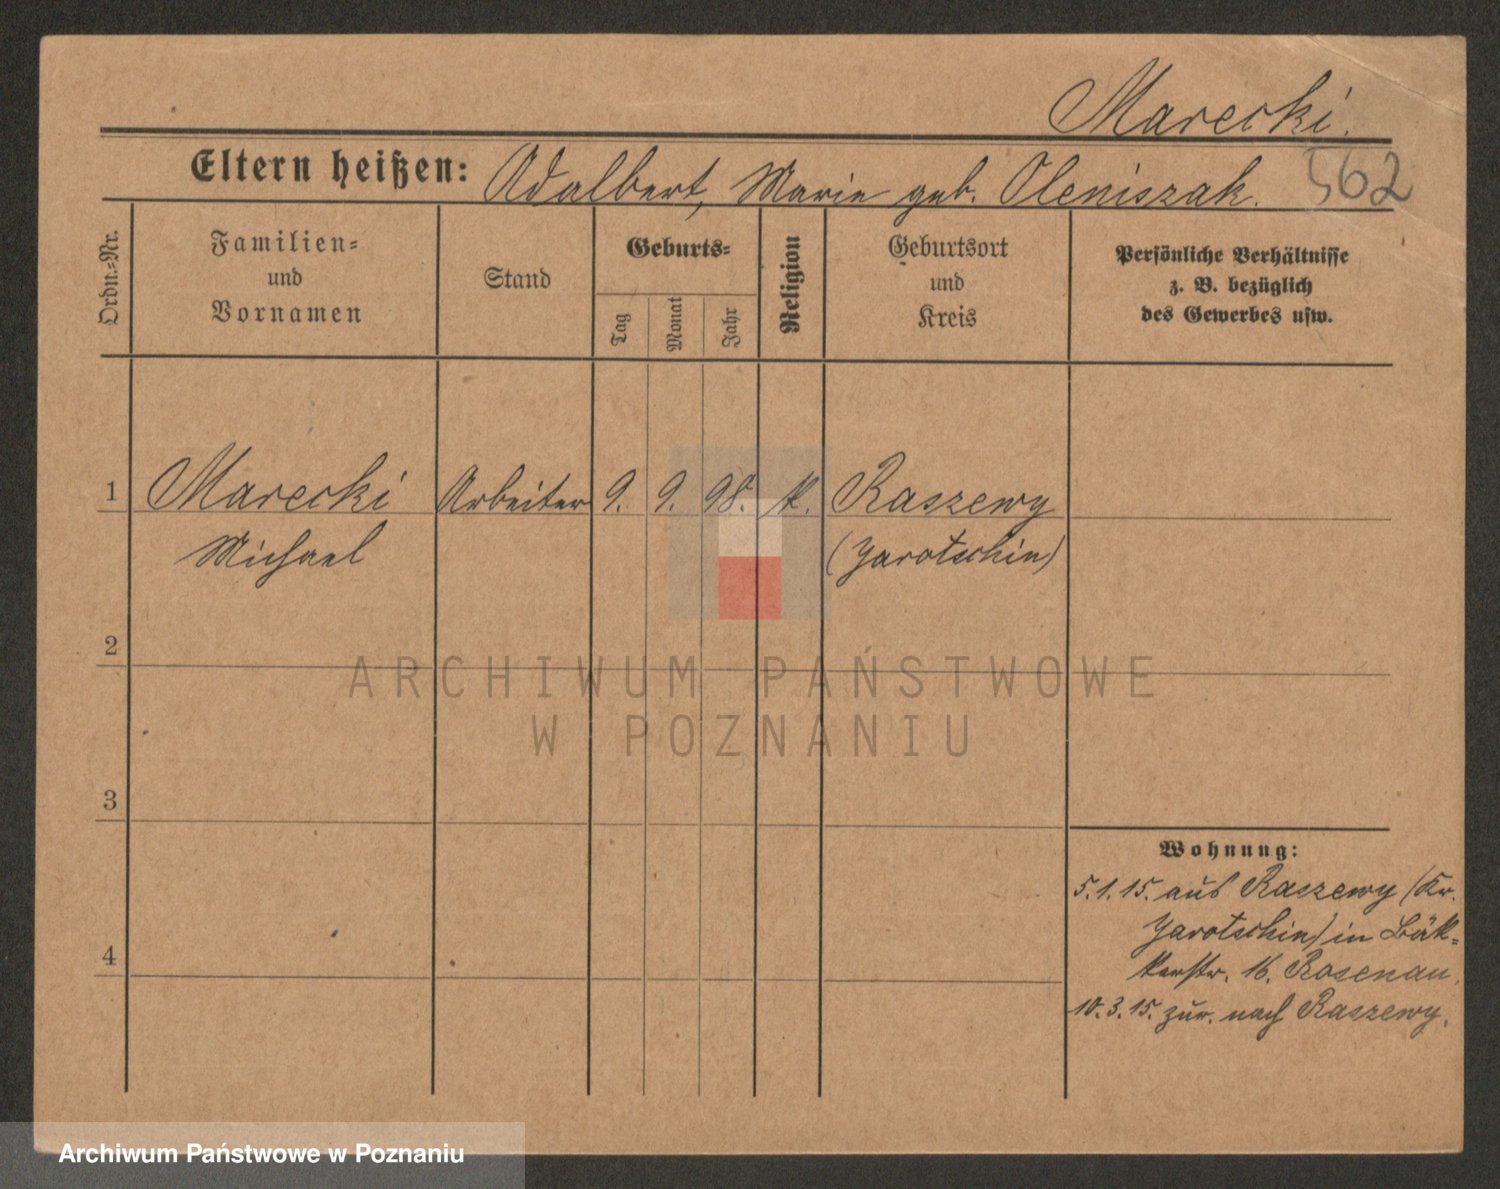 Marecki.
Eltern heißen: Adalbert, Marie geb. Oleniszak. 562
Ordn.-Nr.
Familien-
und
Vornamen
Stand
Geburts-
Tag
Monat
Jahr
Religion
Geburtsort
und
Kreis
Persönliche Verhältnisse
z. B. bezüglich
des Gewerbes usw.
1 Marecki Arbeiter 9. 9. 98. k. Raszewy
Michael (Jarotschin)
2
ARCHIWUM PAŃSTWOWE
W POZNANIU
3
Wohnung:
5.1.15. aus Raszewy (Kr.
Jarotschin) in Bäk-
kerstr. 16. Rosenau.
4
10.3.15. zur. nach Raszewy.
Archiwum Państwowe w Poznaniu